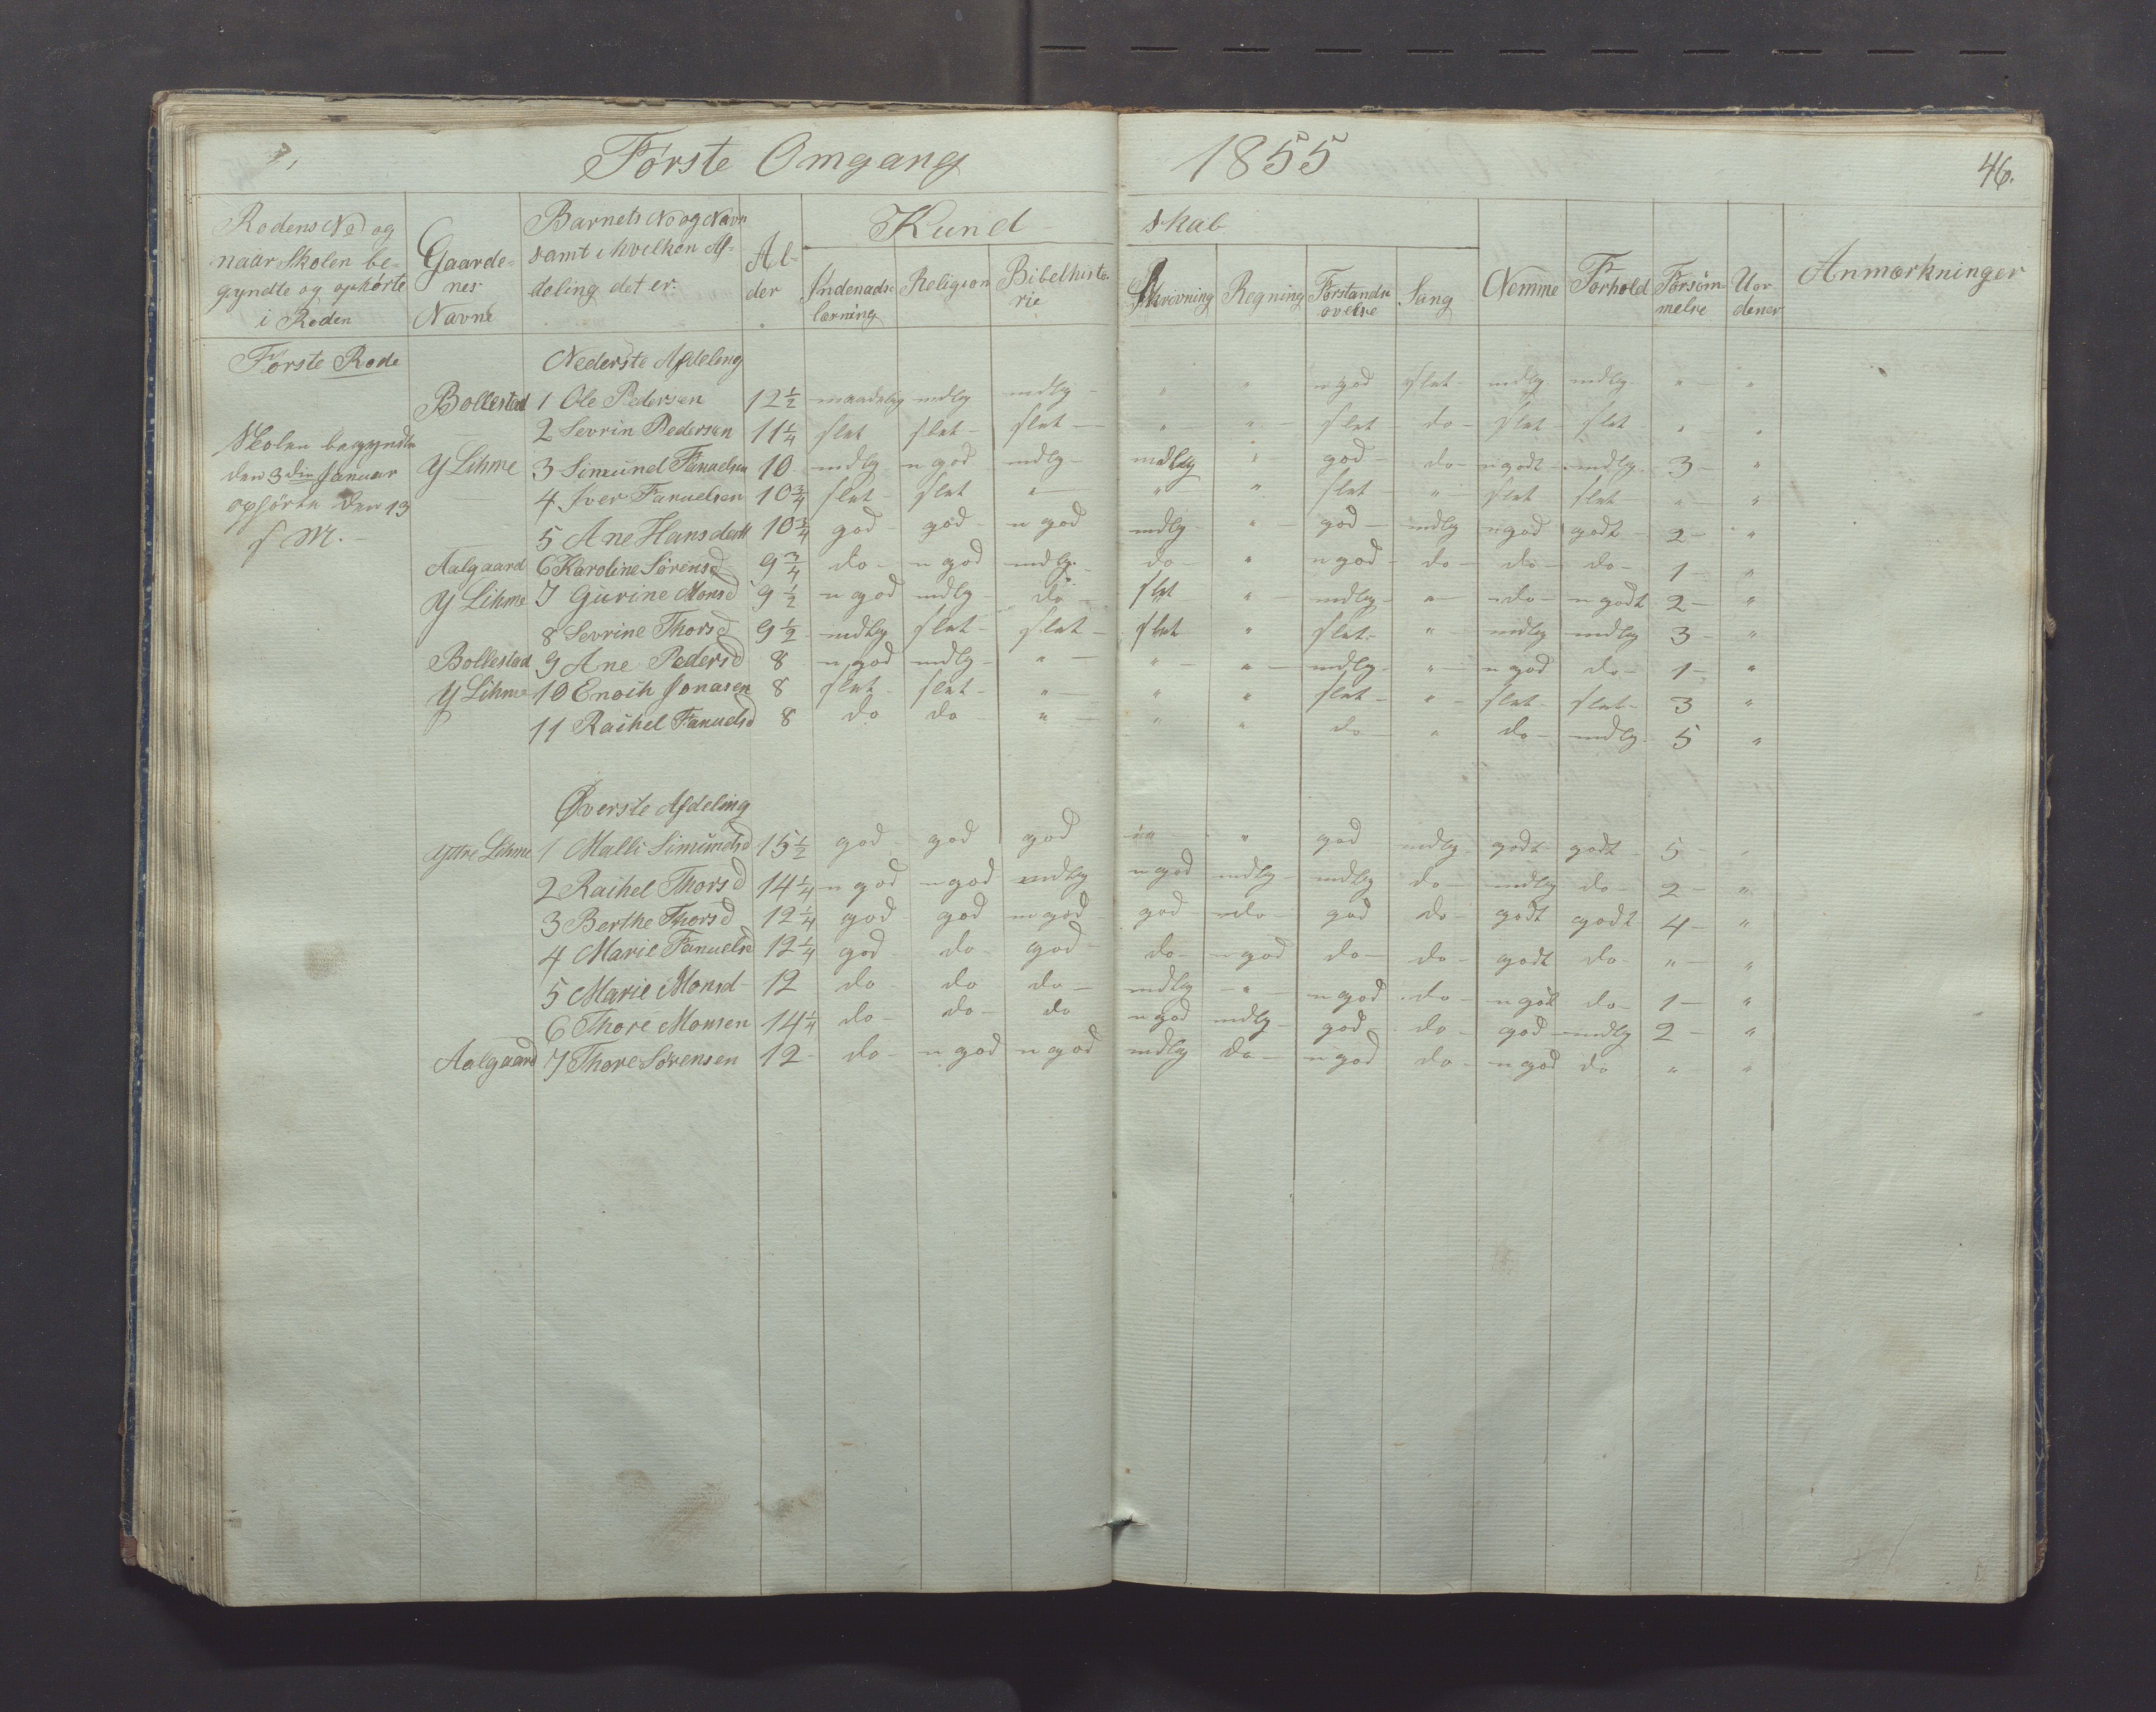 Første Omgang 1855
46.
Rodens No og naar Skolen begyndte og ophørte i Roden | Gaardenes Navne | Barnets No og Navn samt i hvilken Afdeling det er. | Alder | Kundskab | Nemme | Forhold | Forsømmelse | Uordener | Anmærkninger
Indenadslærning | Religion | Bibelhistorie | Skrivning | Regning | Forstandsøvelse | Sang
Første Rode | Nederste Afdeling
Bollestad 1 Ole Pedersen 12½ maadelig mdlg mdlg – " " n god slet – mdlg mdlg – " – "
2 Sevrin Pedersen 11¼ slet slet – slet – " " – slet do – slet – slet " – "
Skolen begyndte
den 3den Januar
ophørte den 13
s M. –
Y Lihme 3 Simund Fanuelsen 10 – mdlg n god mdlg – mdlg " god – do – n godt – mdlg – 3 – "
4 Iver Fanuelsen 10¾ slet – slet " – " " slet – " – slet slet – " – "
5 Ane Hansdatt 10¾ god – god – n god mdlg – " – god – mdlg n god godt – 2 – "
Aalgaard 6 Karoline Sørensd 9¾ do – n god mdlg. – do – " n god – do – do – do – 1 – "
Y Lihme 7 Gurine Monsd 9½ n god mdlg – do – slet " – mdlg – " – do – n godt 2 – "
8 Sevrine Thorsd 9½ – mdlg slet – slet – slet " slet – " – mdlg mdlg 3 – "
Bollestad 9 Ane Pedersd 8 – n god mdlg – " – " – " – mdlg – " – n god do – 1 – "
Y Lihme 10 Enoch Jonasen 8 slet – slet – " – " " slet – " – slet – slet – 3 "
11 Rachel Fanuelsd 8 do do – " – " " do – " do – mdlg – 5 "
Øverste Afdeling
Yttre Lihme 1 Malli Simundsd 15½ god – god god " god mdlg – godt – godt – 5 – "
2 Rachel Thorsd 14¼ – n god – n god mdlg n god mdlg – mdlg do – mdlg do – 2 – "
3 Berthe Thorsd 12¼ god god n god – god – do – god do – godt godt – 4 – "
4 Marie Fanuelsd 12¼ god – do – god – do – n god do – do – godt do – " – "
5 Marie Monsd – 12 do – do do – mdlg – " – n god do – n god do – 1 – "
6 Thore Monsen 14¼ do – do – do n god mdlg – god – do – god – mdlg 2 – "
Aalgaard 7 Thore Sørensen 12 – do – n god n god mdlg do – n god do – n god do " – "